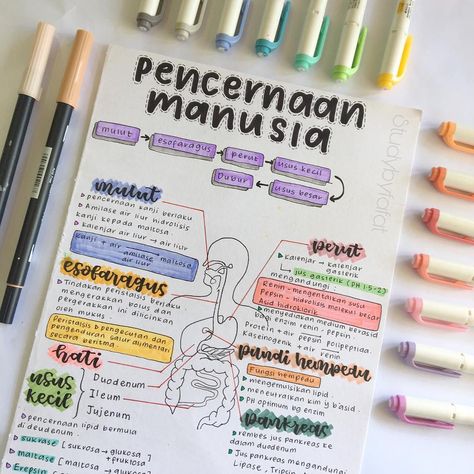 pencernaan
manusia
mulut
esofaragus
perut
usus kecil
usus besar
Dubur
StudybyVafat
mulut
pencernaan kanji berlaku
Amilase air liur hidrolisis
kanji kepada maltosa.
kalenjar air liur → air liur
kanji + air amilase maltosa
air liur
esofaragus
Tindakan peristalsis berlaku
mengerakkan bolus dan
pergerakan ini dilicinkan
oleh mukus.
Peristalsis D pengecutan dan
pengenduran salur alimentari
secara beritma.
hati
usus
kecil
Duodenum
Ileum
Jujenum
pencernaan lipid bermula
di deudenum.
sukrase [sukrosa → glukosa
+ fruktosa]
maltase [maltosa → glukosa]
Erepsin
perut
Kalenjar - kalenjar
gasterik
mengandungi :
jus gasterik (pH 1.5-2)
Renin - mengentalkan susu
Pepsin - hidrolisis molekul besar
Asid hidroklorik
mengediakan medium berasid
bagi enzim renin, pepsin.
Protein + air pepsin polipeptida.
Kaseinogenik + air renin
pundi hempedu
Fungsi hempedu
mengemulsikan lipid.
meneutralkan kim y b'asid.
PH optimum bg enzim
pankreas
rembes jus pankreas ke
dalam duodenum
Jus pankreas mengandungi
Lipase, Tripsin